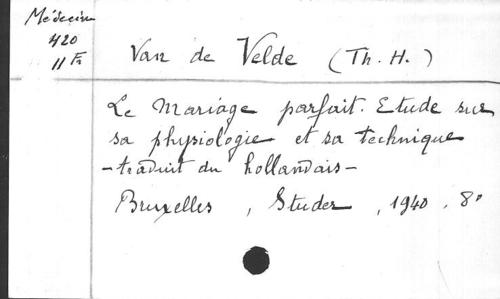 Médecine
420
11 Fa
Van de Velde (Th. H.)
Le Mariage parfait. Etude sur
sa physiologie et sa technique
- traduit du hollandais -
Bruxelles, Studer, 1940, 8°